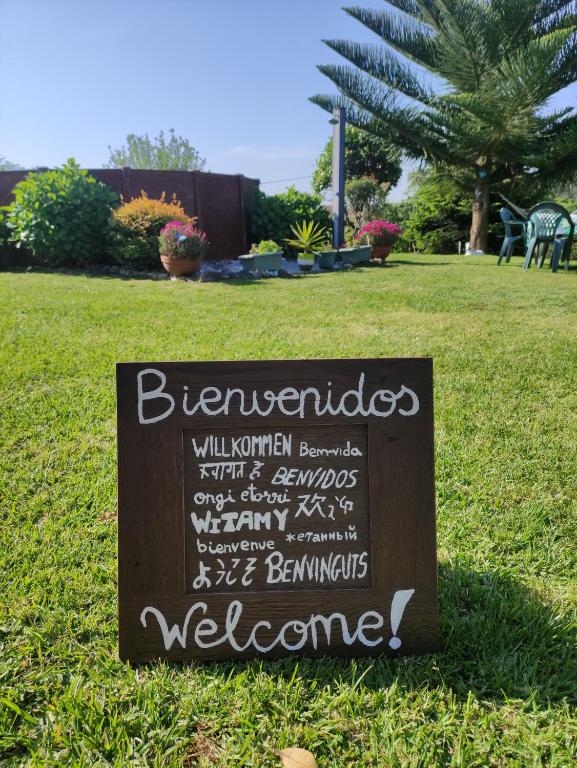 Bienvenidos
WILLKOMMEN Bem-vida
स्वागत है BENVIDOS
ongi etorri 欢迎
WITAMY
bienvenue желанный
ようこそ BENVINGUTS
Welcome!